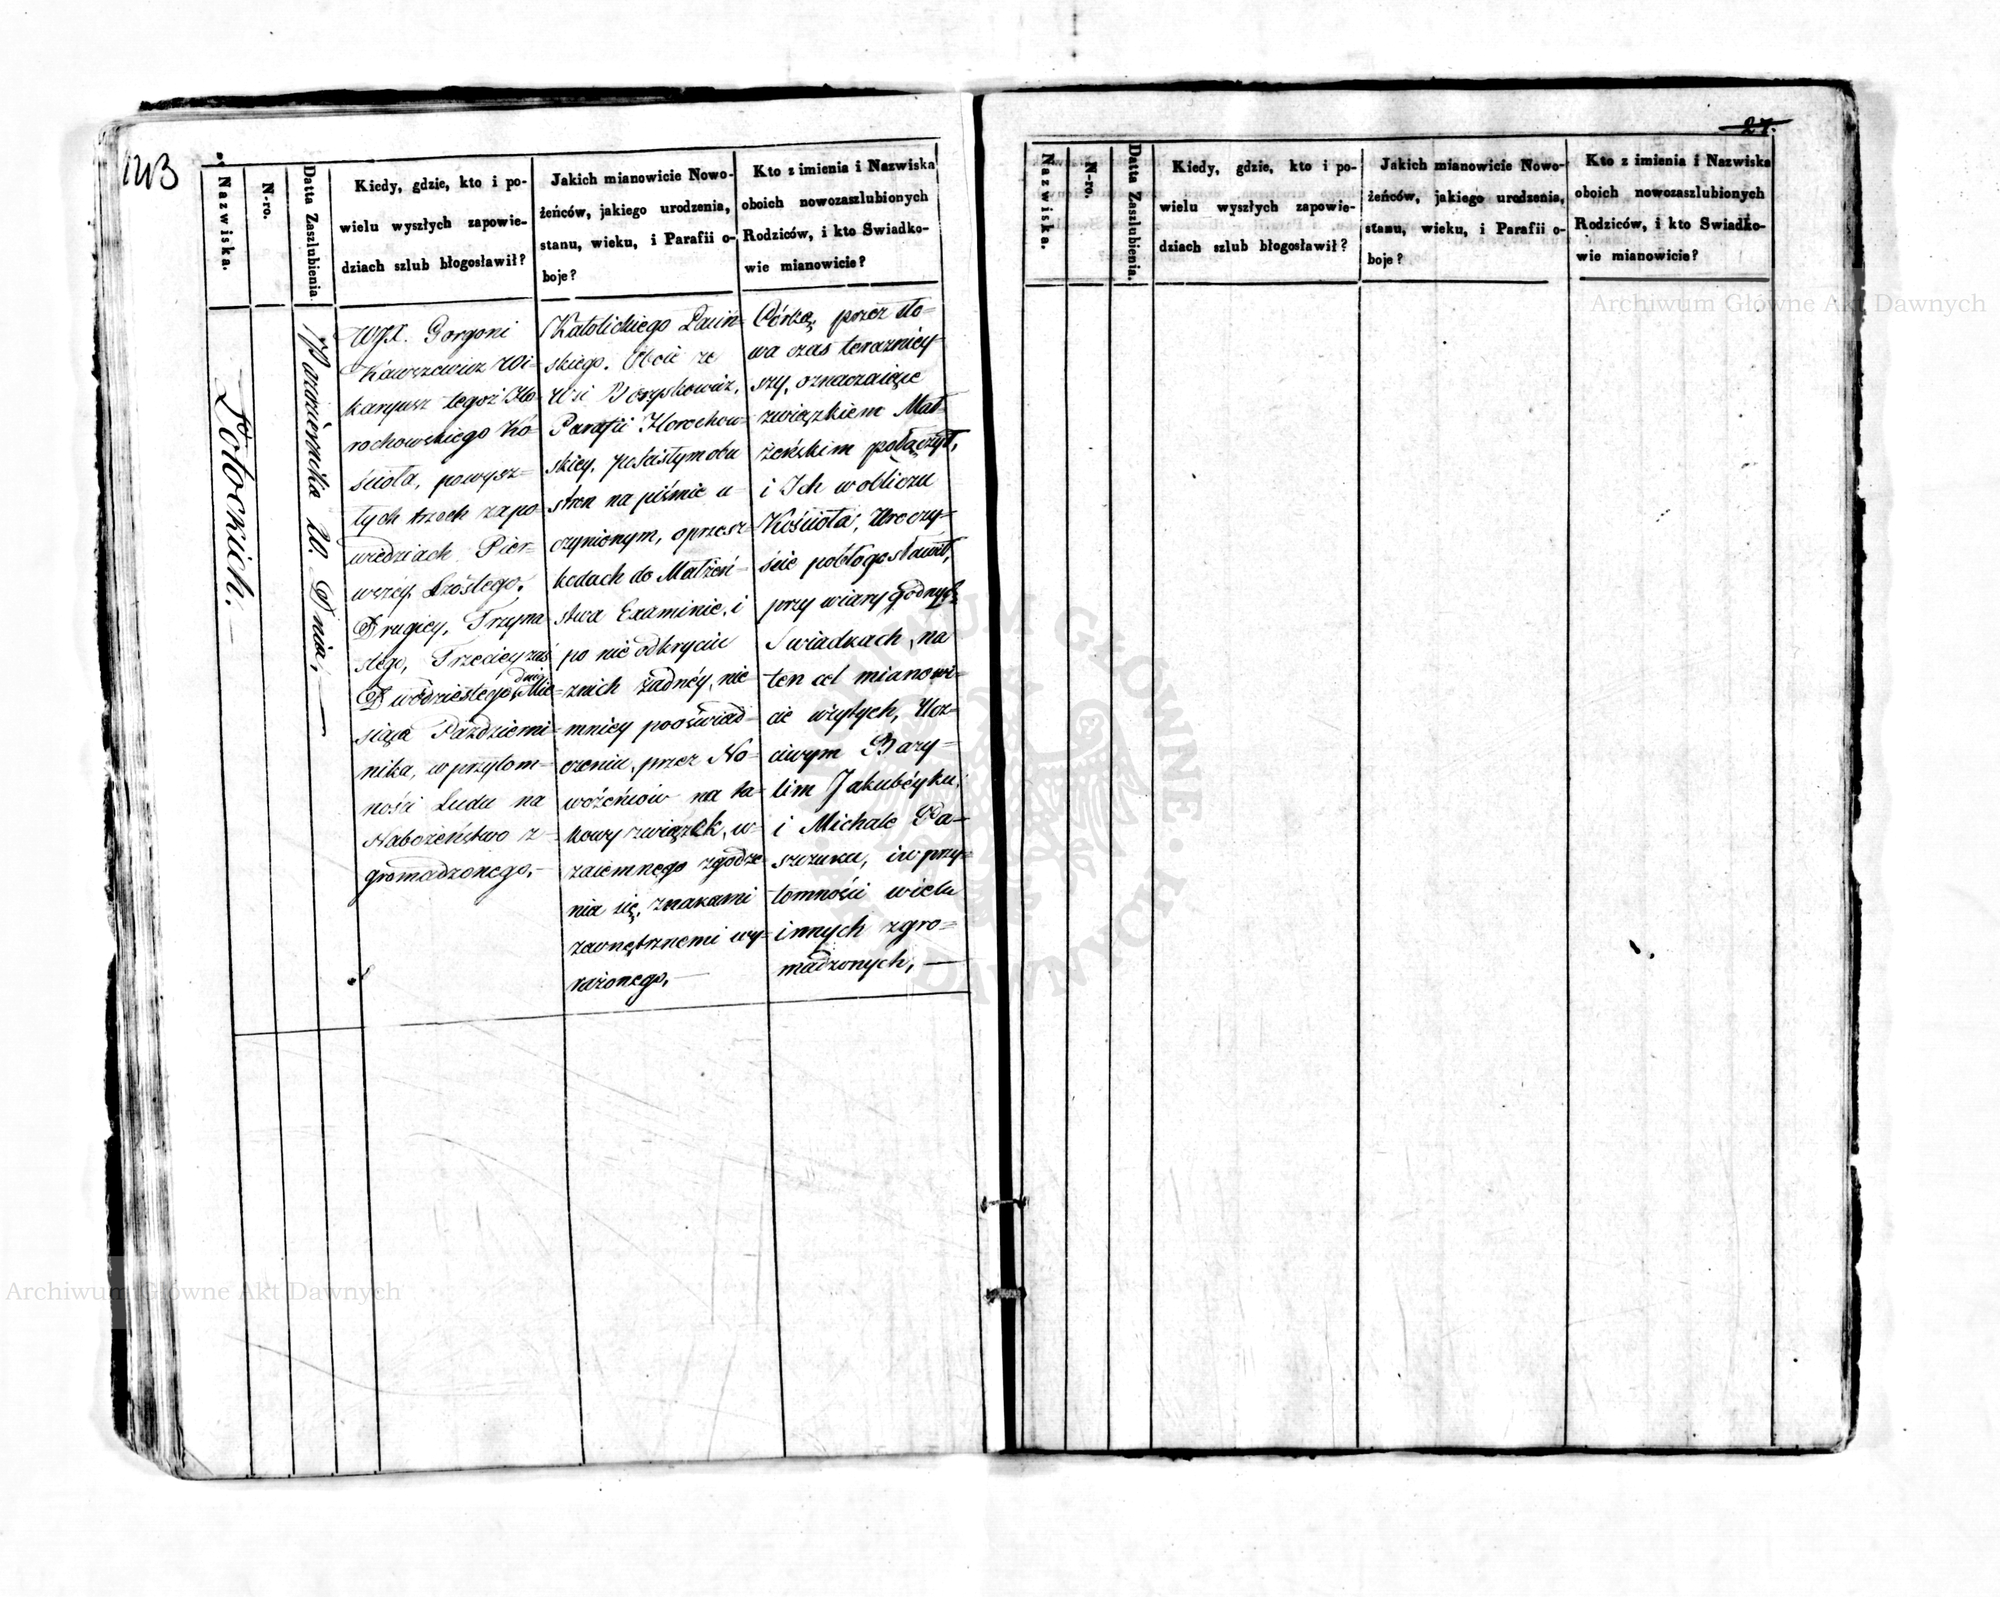 1213
Nazwiska.
N-ro.
Datta Zaszlubienia.
Kiedy, gdzie, kto i po-
wielu wyszłych zapowie-
dziach szlub błogosławił?
Jakich mianowicie Nowo-
żeńców, jakiego urodzenia,
stanu, wieku, i Parafii o-
boje?
Kto z imienia i Nazwiska
oboich nowozaszlubionych
Rodziców, i kto Swiadko-
wie mianowicie?
Października 20. Dnia, —
WJX. Gorgoni
Kawszewicz Wi-
karyusz tegoż Ho-
rochowskiego Ko-
ścioła, powysz-
łych trzech zapo-
wiedziach Pier-
wszey Szóstego,
Drugiey, Trzyna-
stego, Trzeciey zaś
Dwódziestego dnia Mie-
siąca Pazdzierni-
nika, w przytom-
ności Ludu na
Nabożeństwo z-
gromadzonego, —
Katolickiego Łacin-
skiego. Oboie ze
Wsi
Parafii Horochow-
skiey, po ścisłym obu
stron na piśmie u-
czynionym, o przesz-
kodach do Małżeń-
stwa Examinie, i
po nieodkryciu
z nich żadnéy, nie-
mniey pooświad-
czeniu, przez No-
wożeńców na ta-
kowy związek, w-
zaiemnego zgodze-
nia się, znakami
zewnętrznemi wy-
rażonego, —
Córką, przez sło-
wa czas terazniey-
szy, oznaczaiące
związkiem Mał-
żeńskim połączył,
i Ich w obliczu
Kościoła, Uroczy-
ście pobłogosławił,
przy wiary godnych
Swiadkach, na
ten cel mianowi-
cie wżytych, Ucz-
ciwym Bazy-
lim Jakubčyku,
i Michale Pa-
szczuku, i w przy-
tomności wielu
innych zgro-
madzonych, —
27.
Nazwiska.
N-ro.
Datta Zaszlubienia.
Kiedy, gdzie, kto i po-
wielu wyszłych zapowie-
dziach szlub błogosławił?
Jakich mianowicie Nowo-
żeńców, jakiego urodzenia,
stanu, wieku, i Parafii o-
boje?
Kto z imienia i Nazwiska
oboich nowozaszlubionych
Rodziców, i kto Swiadko-
wie mianowicie?
Archiwum Główne Akt Dawnych
Archiwum Główne Akt Dawnych